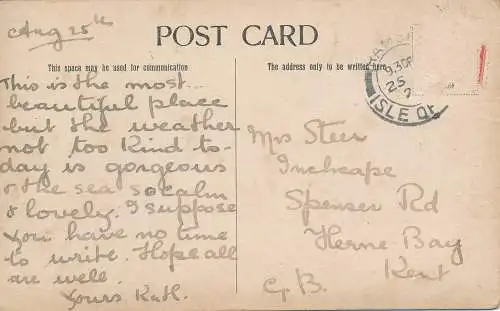 Aug 25th
POST CARD
This space may be used for communication
The address only to be written here
This is the most
beautiful place
but the weather
not too kind to-
day is gorgeous
& the sea so calm
& lovely. I suppose
you have no time
to write. Hope all
are well.
Yours Kath.
Mrs Steer
Inchcape
Spenser Rd
Herne Bay
Kent
G.B.
RAMS
9.30P
25
ISLE OF